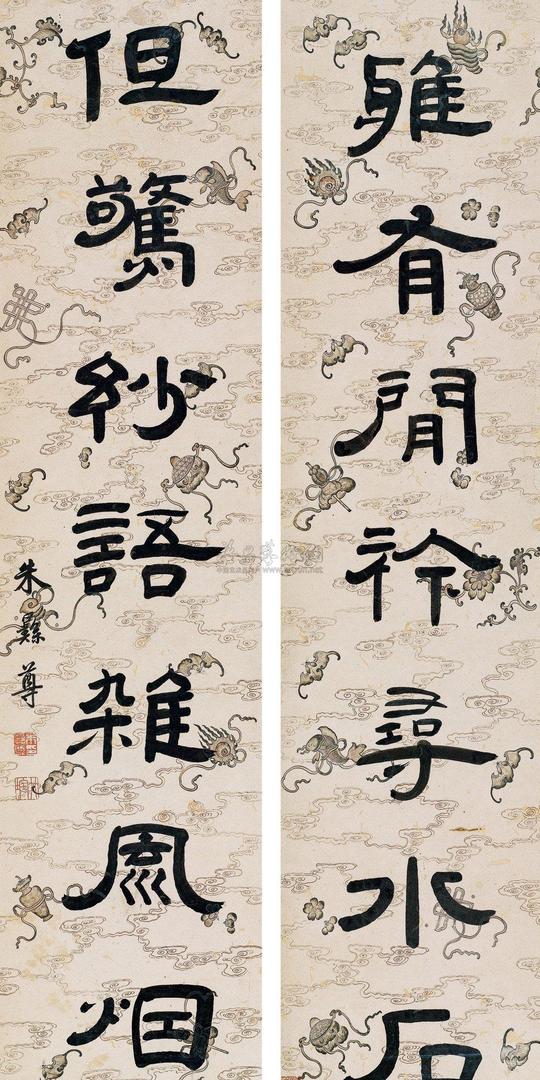 雅有閒衿尋水石
但驚紗語雜風烟
朱彝尊